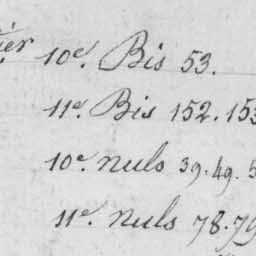 ier 10e. Bis 53.
11e. Bis 152. 153
10e. nuls 39. 49. 5
11e. nuls 78. 79